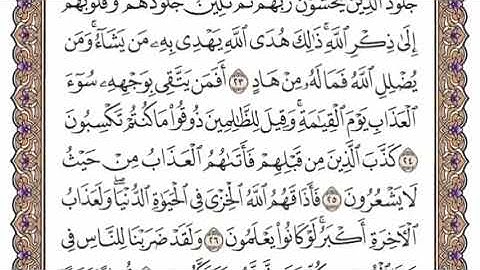 جُلُودُ ٱلَّذِينَ يَخْشَوْنَ رَبَّهُمْ ثُمَّ تَلِينُ جُلُودُهُمْ وَقُلُوبُهُمْ
إِلَىٰ ذِكْرِ ٱللَّهِۚ ذَٰلِكَ هُدَى ٱللَّهِ يَهْدِى بِهِۦ مَن يَشَآءُۚ وَمَن
يُضْلِلِ ٱللَّهُ فَمَا لَهُۥ مِنْ هَادٍ ٢٣ أَفَمَن يَتَّقِى بِوَجْهِهِۦ سُوٓءَ
ٱلْعَذَابِ يَوْمَ ٱلْقِيَٰمَةِۚ وَقِيلَ لِلظَّٰلِمِينَ ذُوقُوا۟ مَا كُنتُمْ تَكْسِبُونَ
٢٤ كَذَّبَ ٱلَّذِينَ مِن قَبْلِهِمْ فَأَتَىٰهُمُ ٱلْعَذَابُ مِنْ حَيْثُ
لَا يَشْعُرُونَ ٢٥ فَأَذَاقَهُمُ ٱللَّهُ ٱلْخِزْىَ فِى ٱلْحَيَوٰةِ ٱلدُّنْيَاۖ وَلَعَذَابُ
ٱلْءَاخِرَةِ أَكْبَرُۚ لَوْ كَانُوا۟ يَعْلَمُونَ ٢٦ وَلَقَدْ ضَرَبْنَا لِلنَّاسِ فِى